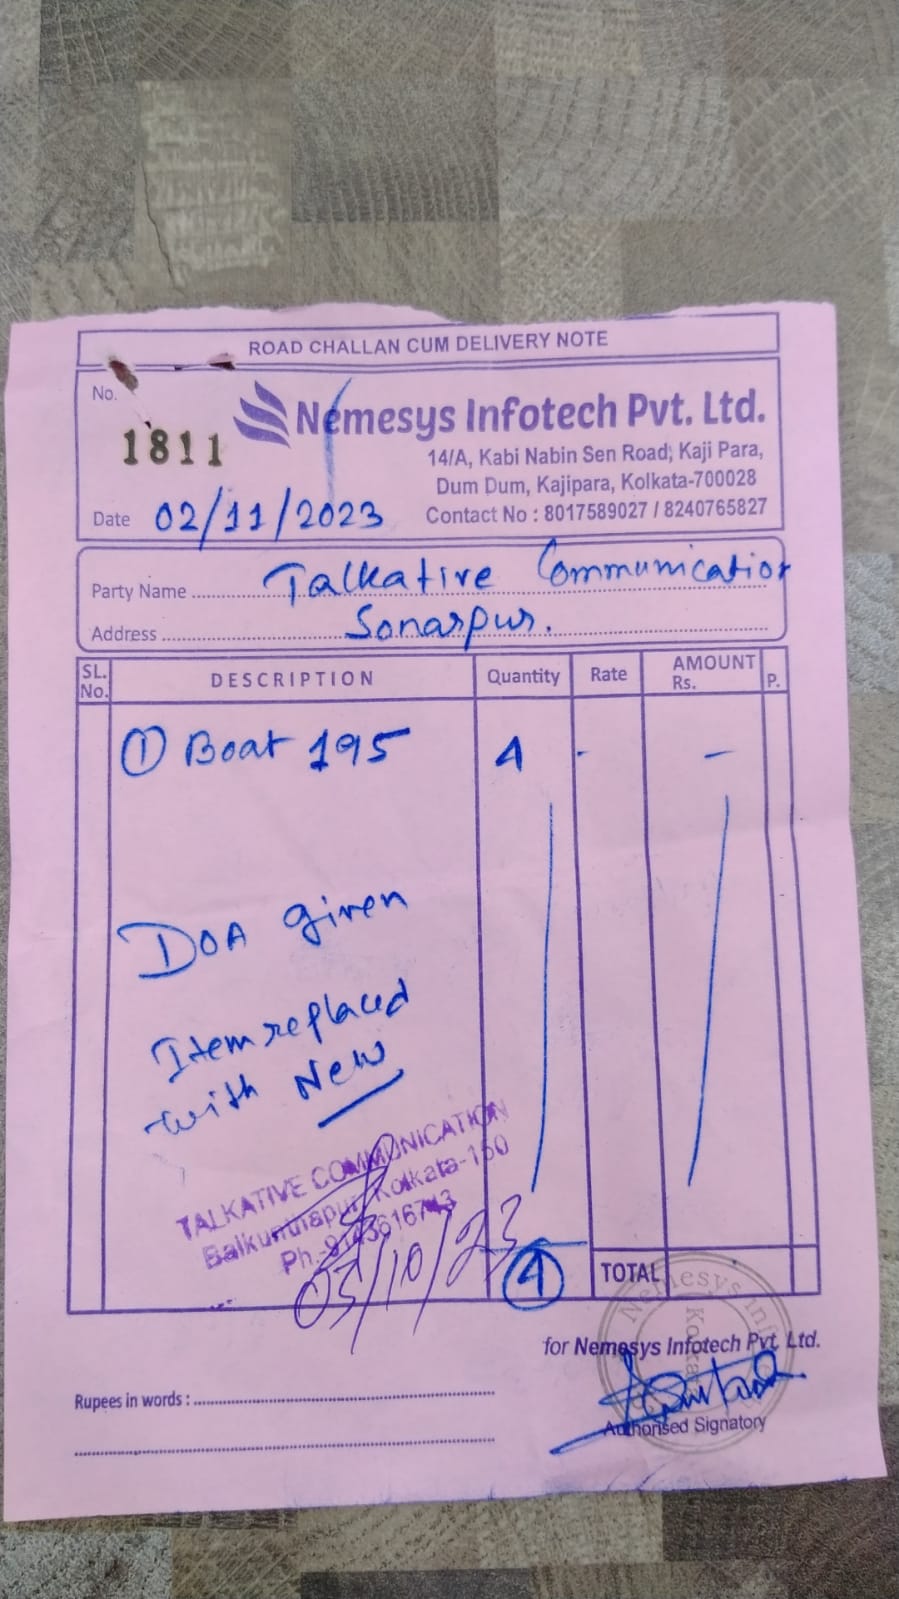 ROAD CHALLAN CUM DELIVERY NOTE
No.
1811
Nemesys Infotech Pvt. Ltd.
14/A, Kabi Nabin Sen Road, Kaji Para,
Dum Dum, Kajipara, Kolkata-700028
Contact No : 8017589027 / 8240765827
Date 02/11/2023
Party Name Talkative Communication
Address Sonarpur.
SL. No. DESCRIPTION Quantity Rate AMOUNT Rs. P.
① Boat 195 4 - -
DOA given
Item replaced
with New
TALKATIVE COMMUNICATION
Kolkata-150
Ph.-
03/10/23
4 TOTAL
for Nemesys Infotech Pvt. Ltd.
Rupees in words :
Authorised Signatory